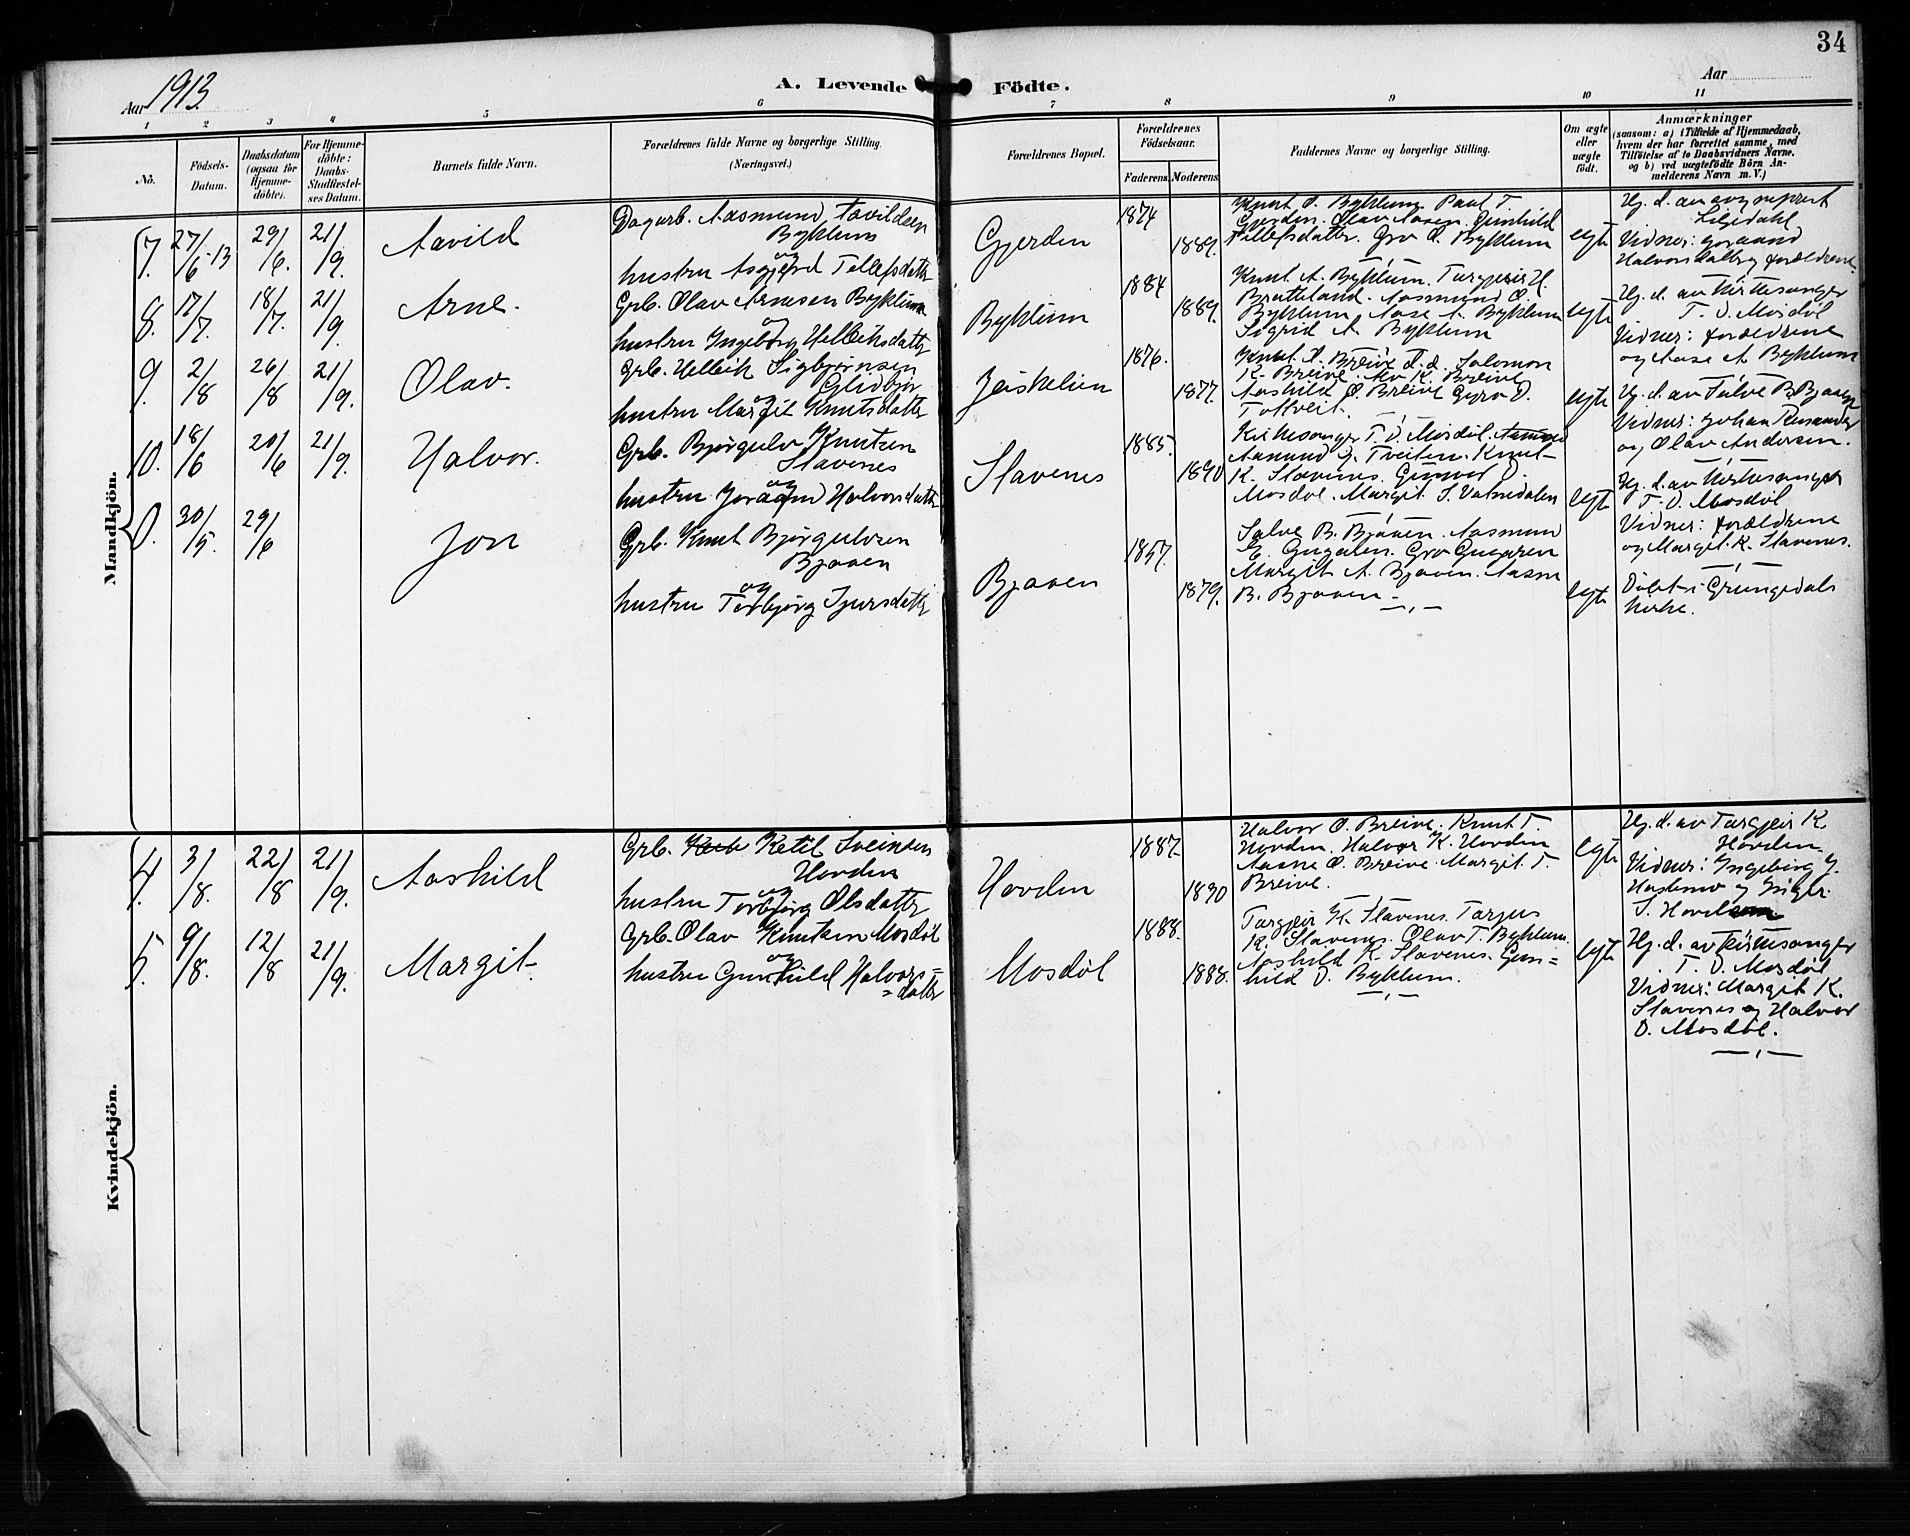 34
Aar 1913.
A. Levende Födte.
Aar
1
2
3
4
5
6
7
8
9
10
11
No.
Födsels-
Datum.
Daabsdatum
(ogsaa for
Hjemme-
döbte).
For Hjemme-
döbte:
Daabs-
Stadfæstel-
ses Datum.
Barnets fulde Navn.
Forældrenes fulde Navne og borgerlige Stilling.
(Næringsvei.)
Forældrenes Bopæl.
Forældrenes
Födselsaar.
Faderens
Moderens
Faddernes Navne og borgerlige Stilling.
Om ægte
eller
uægte
födt.
Anmærkninger
(saasom: a) i Tilfælde af Hjemmedaab,
hvem der har forrettet samme, med
Tilföielse af to Daabsvidners Navne,
og b) ved uægtefödte Börn An-
melderens Navn m. V.)
Mandkjön.
7.
27/6-13
29/6.
21/9.
Aavild
Dagarb. Aasmund Tavildsen
Byklum
og
hustru Asgjerd Tellefsdatter
Gjerden
1874
1889.
Knut O. Byklum. Paul T.
Gjerden. Olav Aasen. Gunhild
Tellefsdatter. Gro O. Byklum
egte
Hj. d. av sogneprest
Liljedahl
Vidner: Joraand
Halvorsdatter og forældrene
8.
17/7.
18/7.
21/9.
Arne.
Grb. Olav Arnesen Byklum
og
hustru Ingeborg Helleiksdatter
Byklum
1884
1889.
Knut A. Byklum. Targjeir H.
Bratteland. Aasmund O.
Byklum. Aase A. Byklum
Sigrid A. Byklum
egte
Hj. d. av Kirkesanger
T. D. Mosdöl
Vidner: forældrene
og Aase A. Byklum
9.
2/8
26/8
21/9.
Olav.
Grb. Helleik Sigbjørnsen
Glidbjør
og
hustru Margit Knutsdatter
Jeiskelien
1876.
1877.
Knut D. Breive d. e. Salomon
K. Breive. Av K. Breive
Aashild O. Breive Gyro D.
Toftveit.
egte
Hj. d. av Salve B. Bjaaen
Vidner: Johan Rusander
og Olav Andersen.
10.
18/6
20/6
21/9.
Halvor.
Grb. Bjørgulv Knutsen
Stavenes
og
hustru Joraand Halvorsdatter
Stavenes
1885.
1890
Kirkesanger T. D. Mosdøl.
Aanund G. Tveiten. Knut
K. Stavenes. Gunvor D.
Mosdøl. Margit S. Vatnedalen
egte
Hj. d. av Kirkesanger
T. D. Mosdöl
Vidner: forældrene
og Margit. K. Stavenes.
0.
30/5.
29/6
Jon
Grb. Knut Bjørgulvsen
Bjaaen
og
hustru Torbjørg Sjursdatter
Bjaaen
1857.
1879.
Salve B. Bjaaen. Aasmund
G. Gugaren. Gro Gugaren
Margit A. Bjaaen. Aasne
B. Bjaaen
egte
Døbt i Grungedals
kirke.
Kvindekjön.
4.
3/8.
22/8
21/9.
Aashild
Grb. Ketil Sveinsen
Hovden
og
hustru Torbjørg Olsdatter
Hovden
1887.
1890
Halvor O. Breive. Knut T.
Hovden. Halvor K. Hovden
Aasne O. Breive. Margit T.
Breive.
egte
Hj. d. av Targjeir K
Hovden.
Vidner: Ingeborg G.
Haslemo og Inger
S. Hovden
5.
9/8.
12/8
21/9.
Margit
Grb. Olav Knutsen Mosdøl
og
hustru Gunhild Halvors=
=datter
Mosdøl
1888.
1888.
Targjeir K. Stavenes. Tarjus
K. Stavenes. Olav T. Byklum.
Aashild K. Stavenes. Gun=
hild D. Byklum.
egte
Hj. d. av kirkesanger
T. D. Mosdøl
Vidner: Margit K.
Stavenes og Halvor
O. Mosdøl.